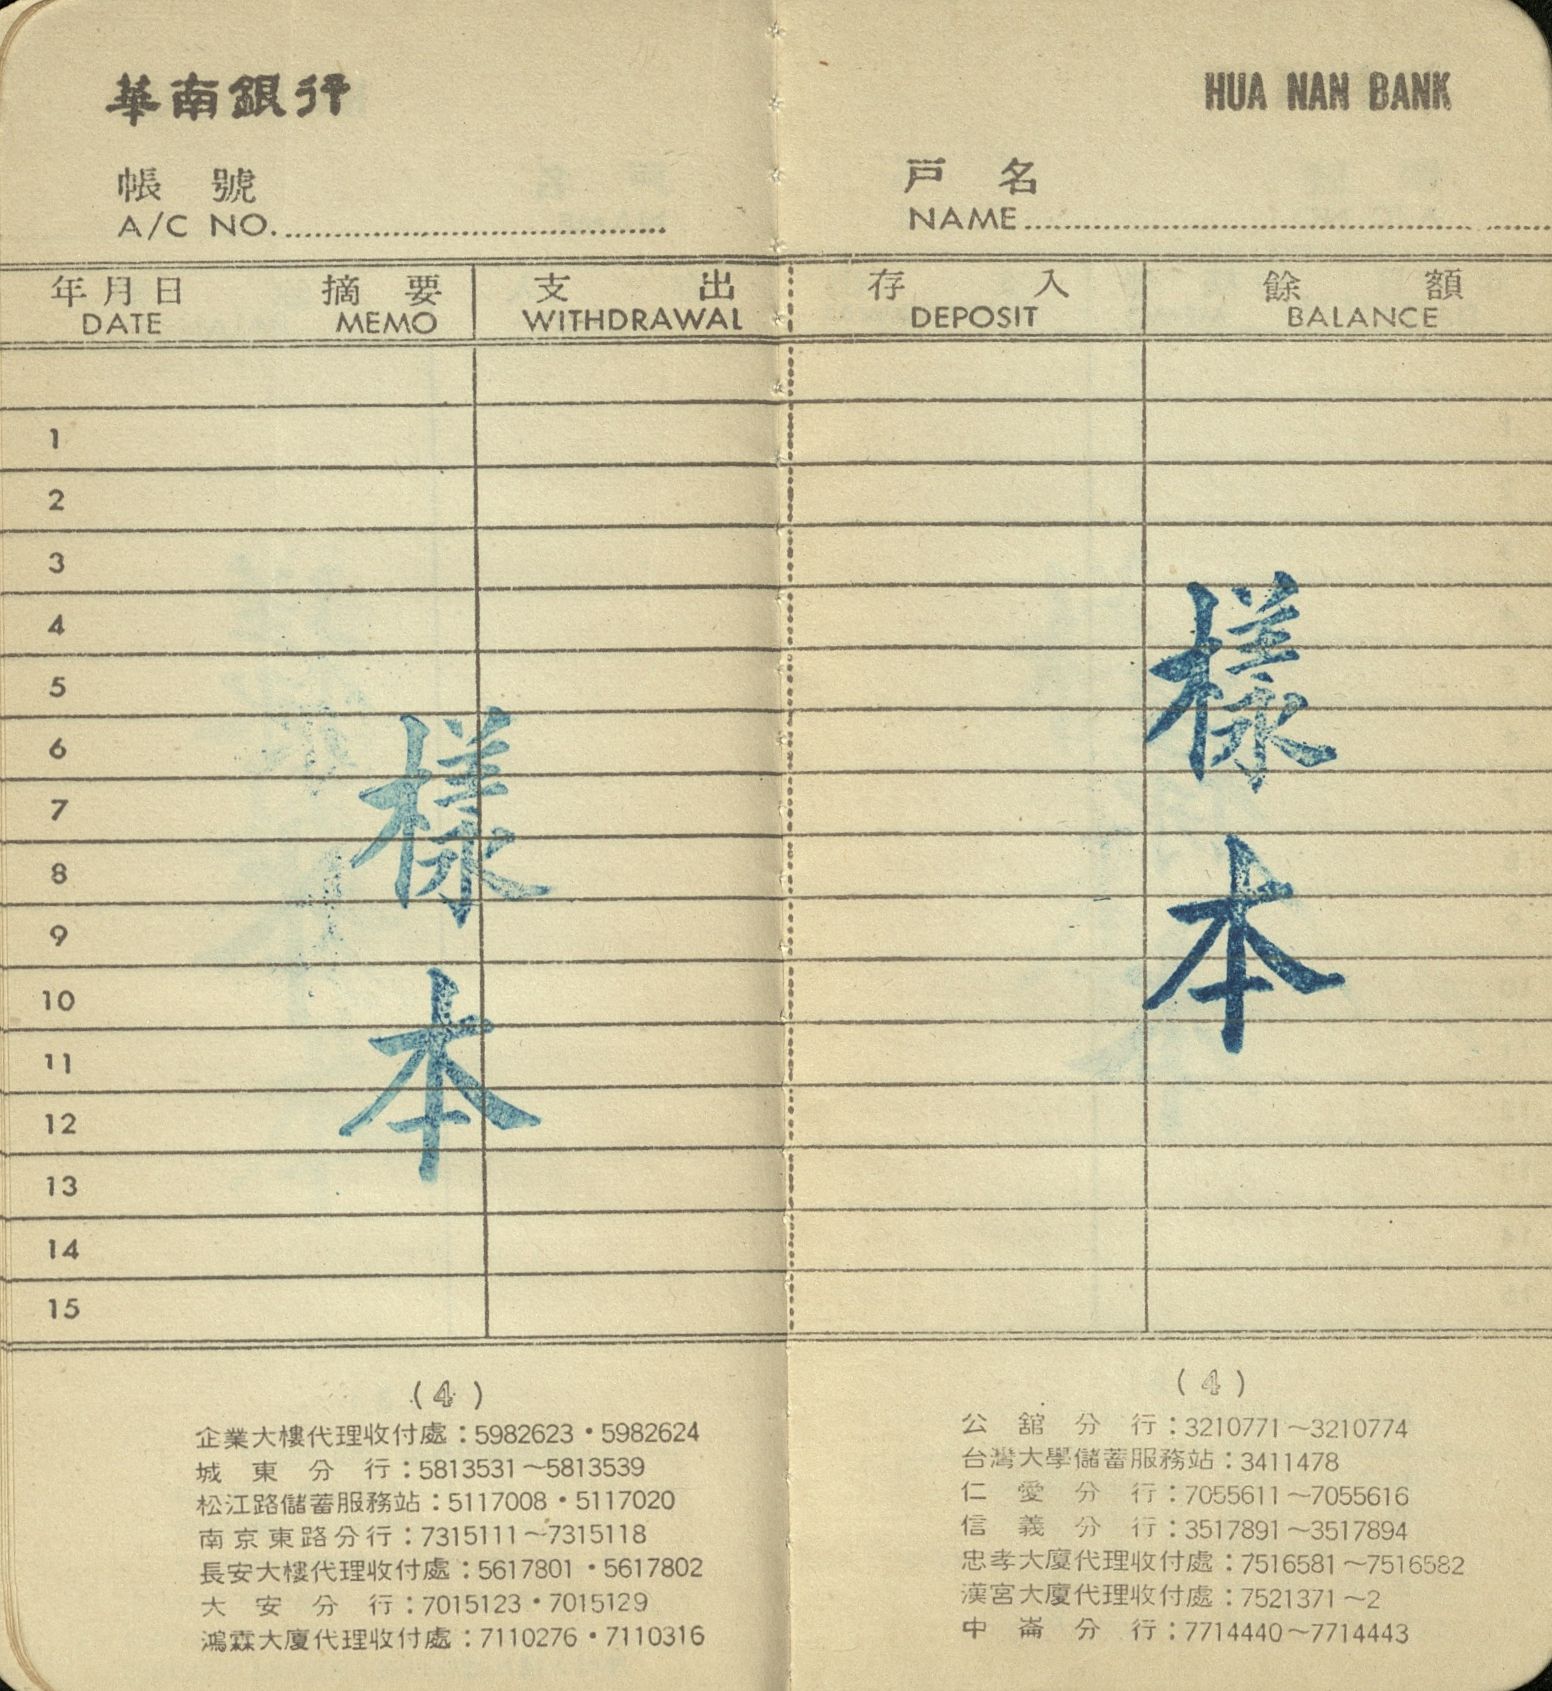 華南銀行
HUA NAN BANK
帳號
A/C NO.
戶名
NAME
年月日 摘要 支出 存入 餘額
DATE MEMO WITHDRAWAL DEPOSIT BALANCE
1
2
3
4
5
6
7
8
9
10
11
12
13
14
15
樣本
樣本
(4)
企業大樓代理收付處：5982623・5982624
城東分行：5813531～5813539
松江路儲蓄服務站：5117008・5117020
南京東路分行：7315111～7315118
長安大樓代理收付處：5617801・5617802
大安分行：7015123・7015129
鴻霖大廈代理收付處：7110276・7110316
(4)
公館分行：3210771～3210774
台灣大學儲蓄服務站：3411478
仁愛分行：7055611～7055616
信義分行：3517891～3517894
忠孝大廈代理收付處：7516581～7516582
漢宮大廈代理收付處：7521371～2
中崙分行：7714440～7714443